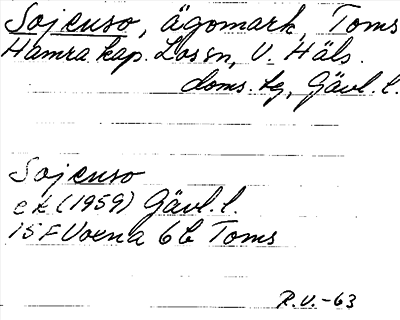 Sojenso, ägomark, Toms
Hamra kap. Los sn, V. Häls.
doms. tg, Gävl. l.
Sojenso
ek (1959) Gävl. l.
15 F Voxna 6b Toms
R.V.-63